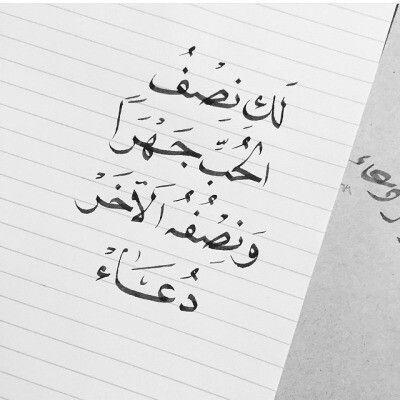 لَكِ نِصْفُ
الحُبِّ جَهْرًا
وَنِصْفُهُ الآخَرْ
دُعَاءْ